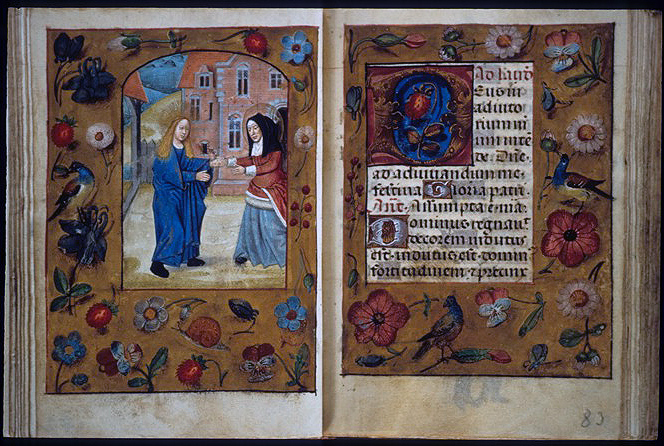 Ad laud
Eus in
adiuto
rium m
um inte
de. Dñe
ad adiuuandum me
festina Gloria patri.
Añt. Assumpta e ma.
Dominus regnauit
decorem indutus
est: indutus est domin
fortitudinem et precinx
83